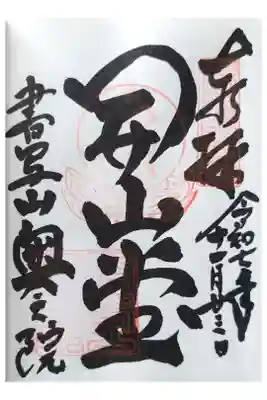 奉拝
令和七年
十一月廿三日
開山堂
書写山奥之院